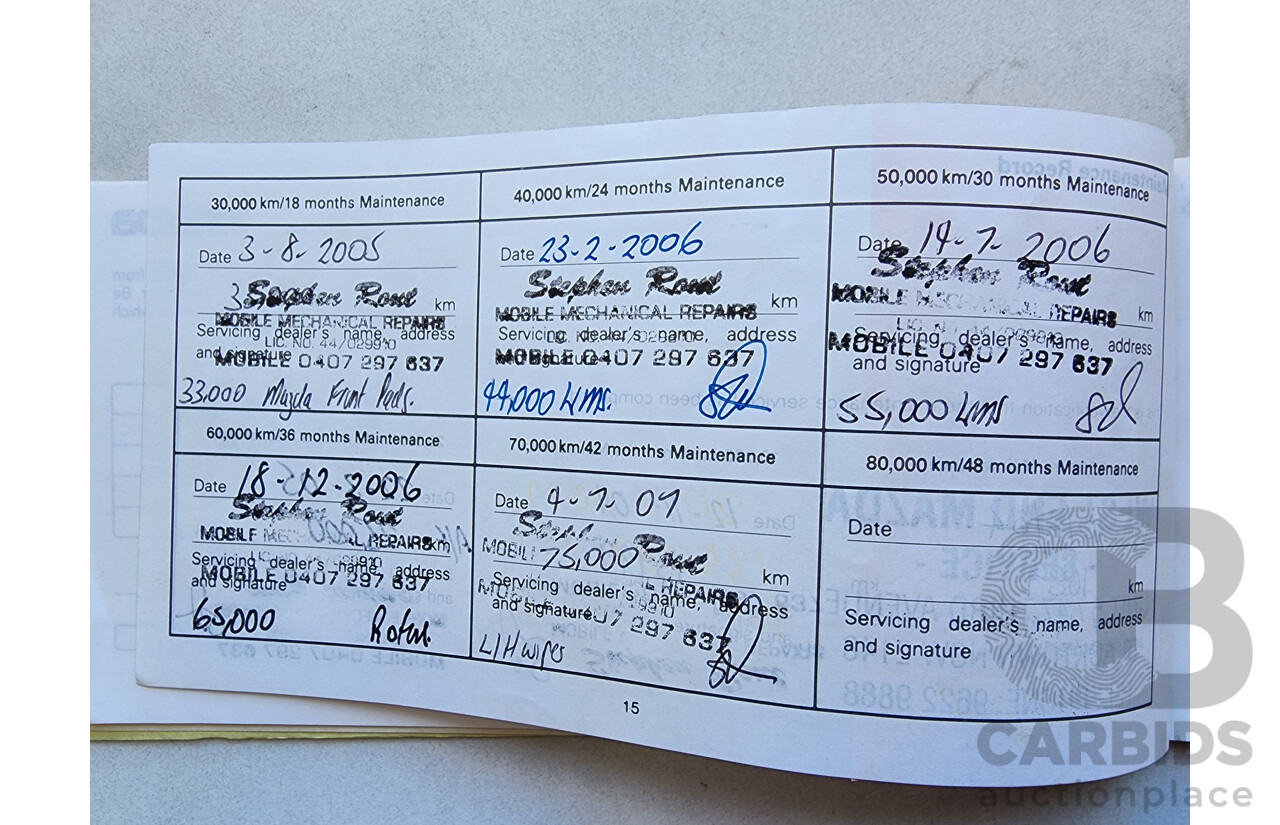 30,000 km/18 months Maintenance
Date 3-8-2005
Stephen Rout
km
MOBILE MECHANICAL REPAIRS
Servicing dealer's name, address
LIC. NO. 44/029910
and signature
MOBILE 0407 297 637
33,000 Mazda Front Pads.
40,000 km/24 months Maintenance
Date 23-2-2006
Stephen Rout
km
MOBILE MECHANICAL REPAIRS
Servicing dealer's name, address
MOBILE 0407 297 637
44,000 kms.
50,000 km/30 months Maintenance
Date 14-7-2006
Stephen Rout
MOBILE MECHANICAL REPAIRS km
Servicing dealer's name, address
MOBILE 0407 297 637
and signature
55,000 kms
60,000 km/36 months Maintenance
Date 18-12-2006
Stephen Rout
MOBILE MECHANICAL REPAIRS km
Servicing dealer's name, address
MOBILE 0407 297 637
and signature
65,000
70,000 km/42 months Maintenance
Date 4-7-07
Stephen Rout
75,000
km
MOBILE REPAIRS
Servicing dealer's name, address
and signature
297 637
L/H wiper
80,000 km/48 months Maintenance
Date
km
Servicing dealer's name, address
and signature
15
CARBIDS
auctionplace